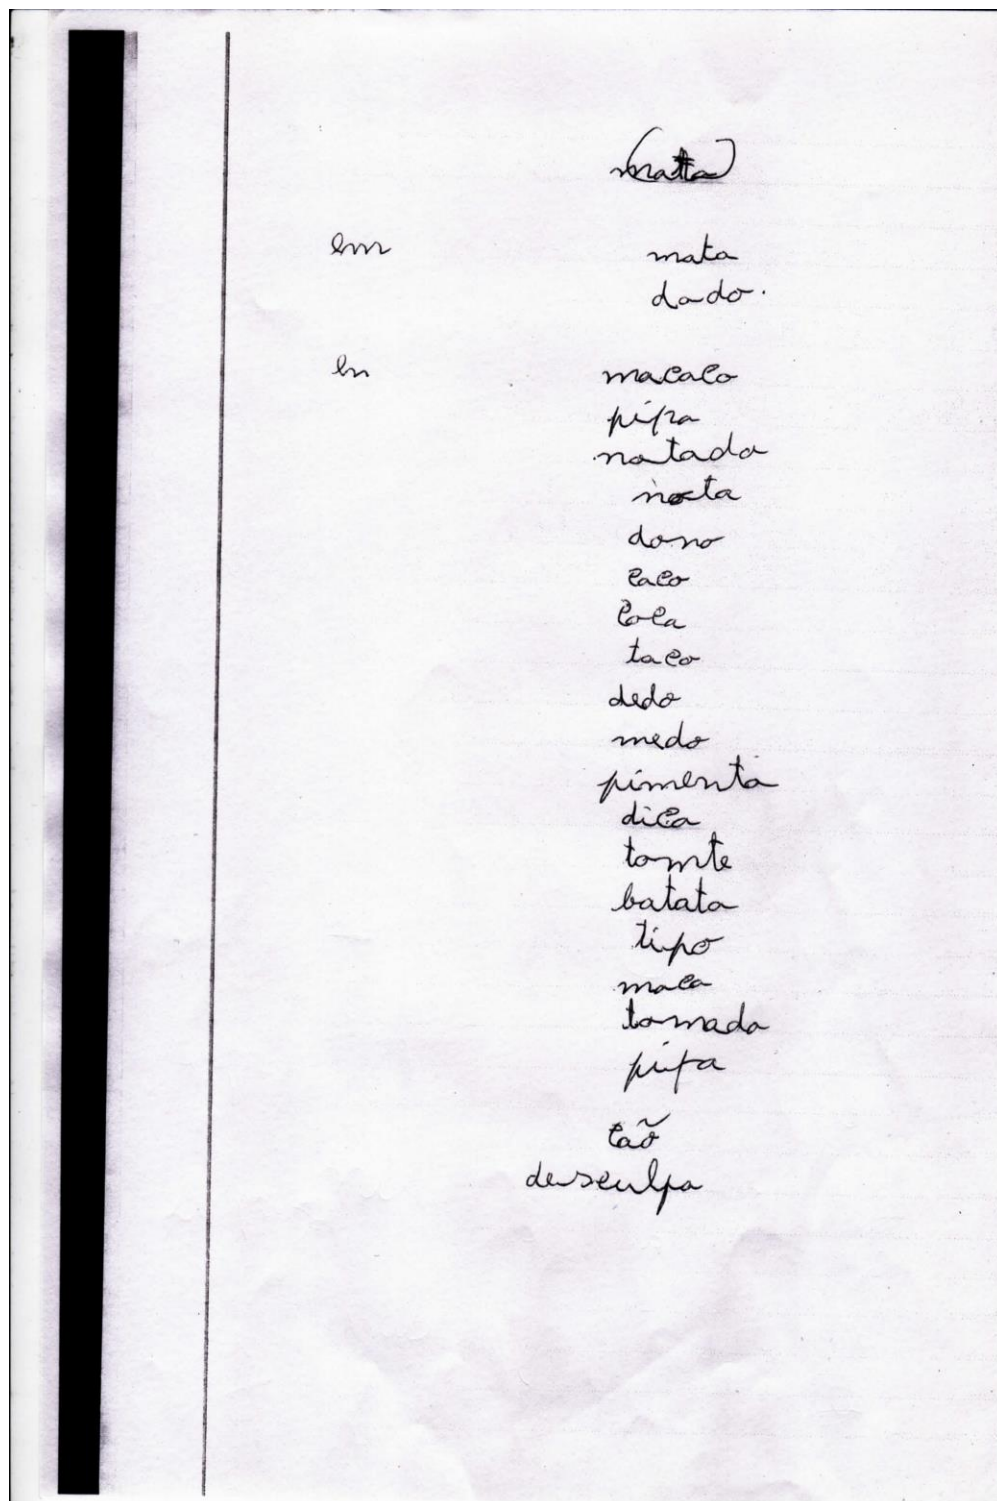 (matta)
em mata
dado.
en macaco
pipa
notado
nota
dono
caco
coca
taco
dedo
medo
pimenta
dica
tomte
batata
tipo
maca
tomada
pipa
cão
desculpa